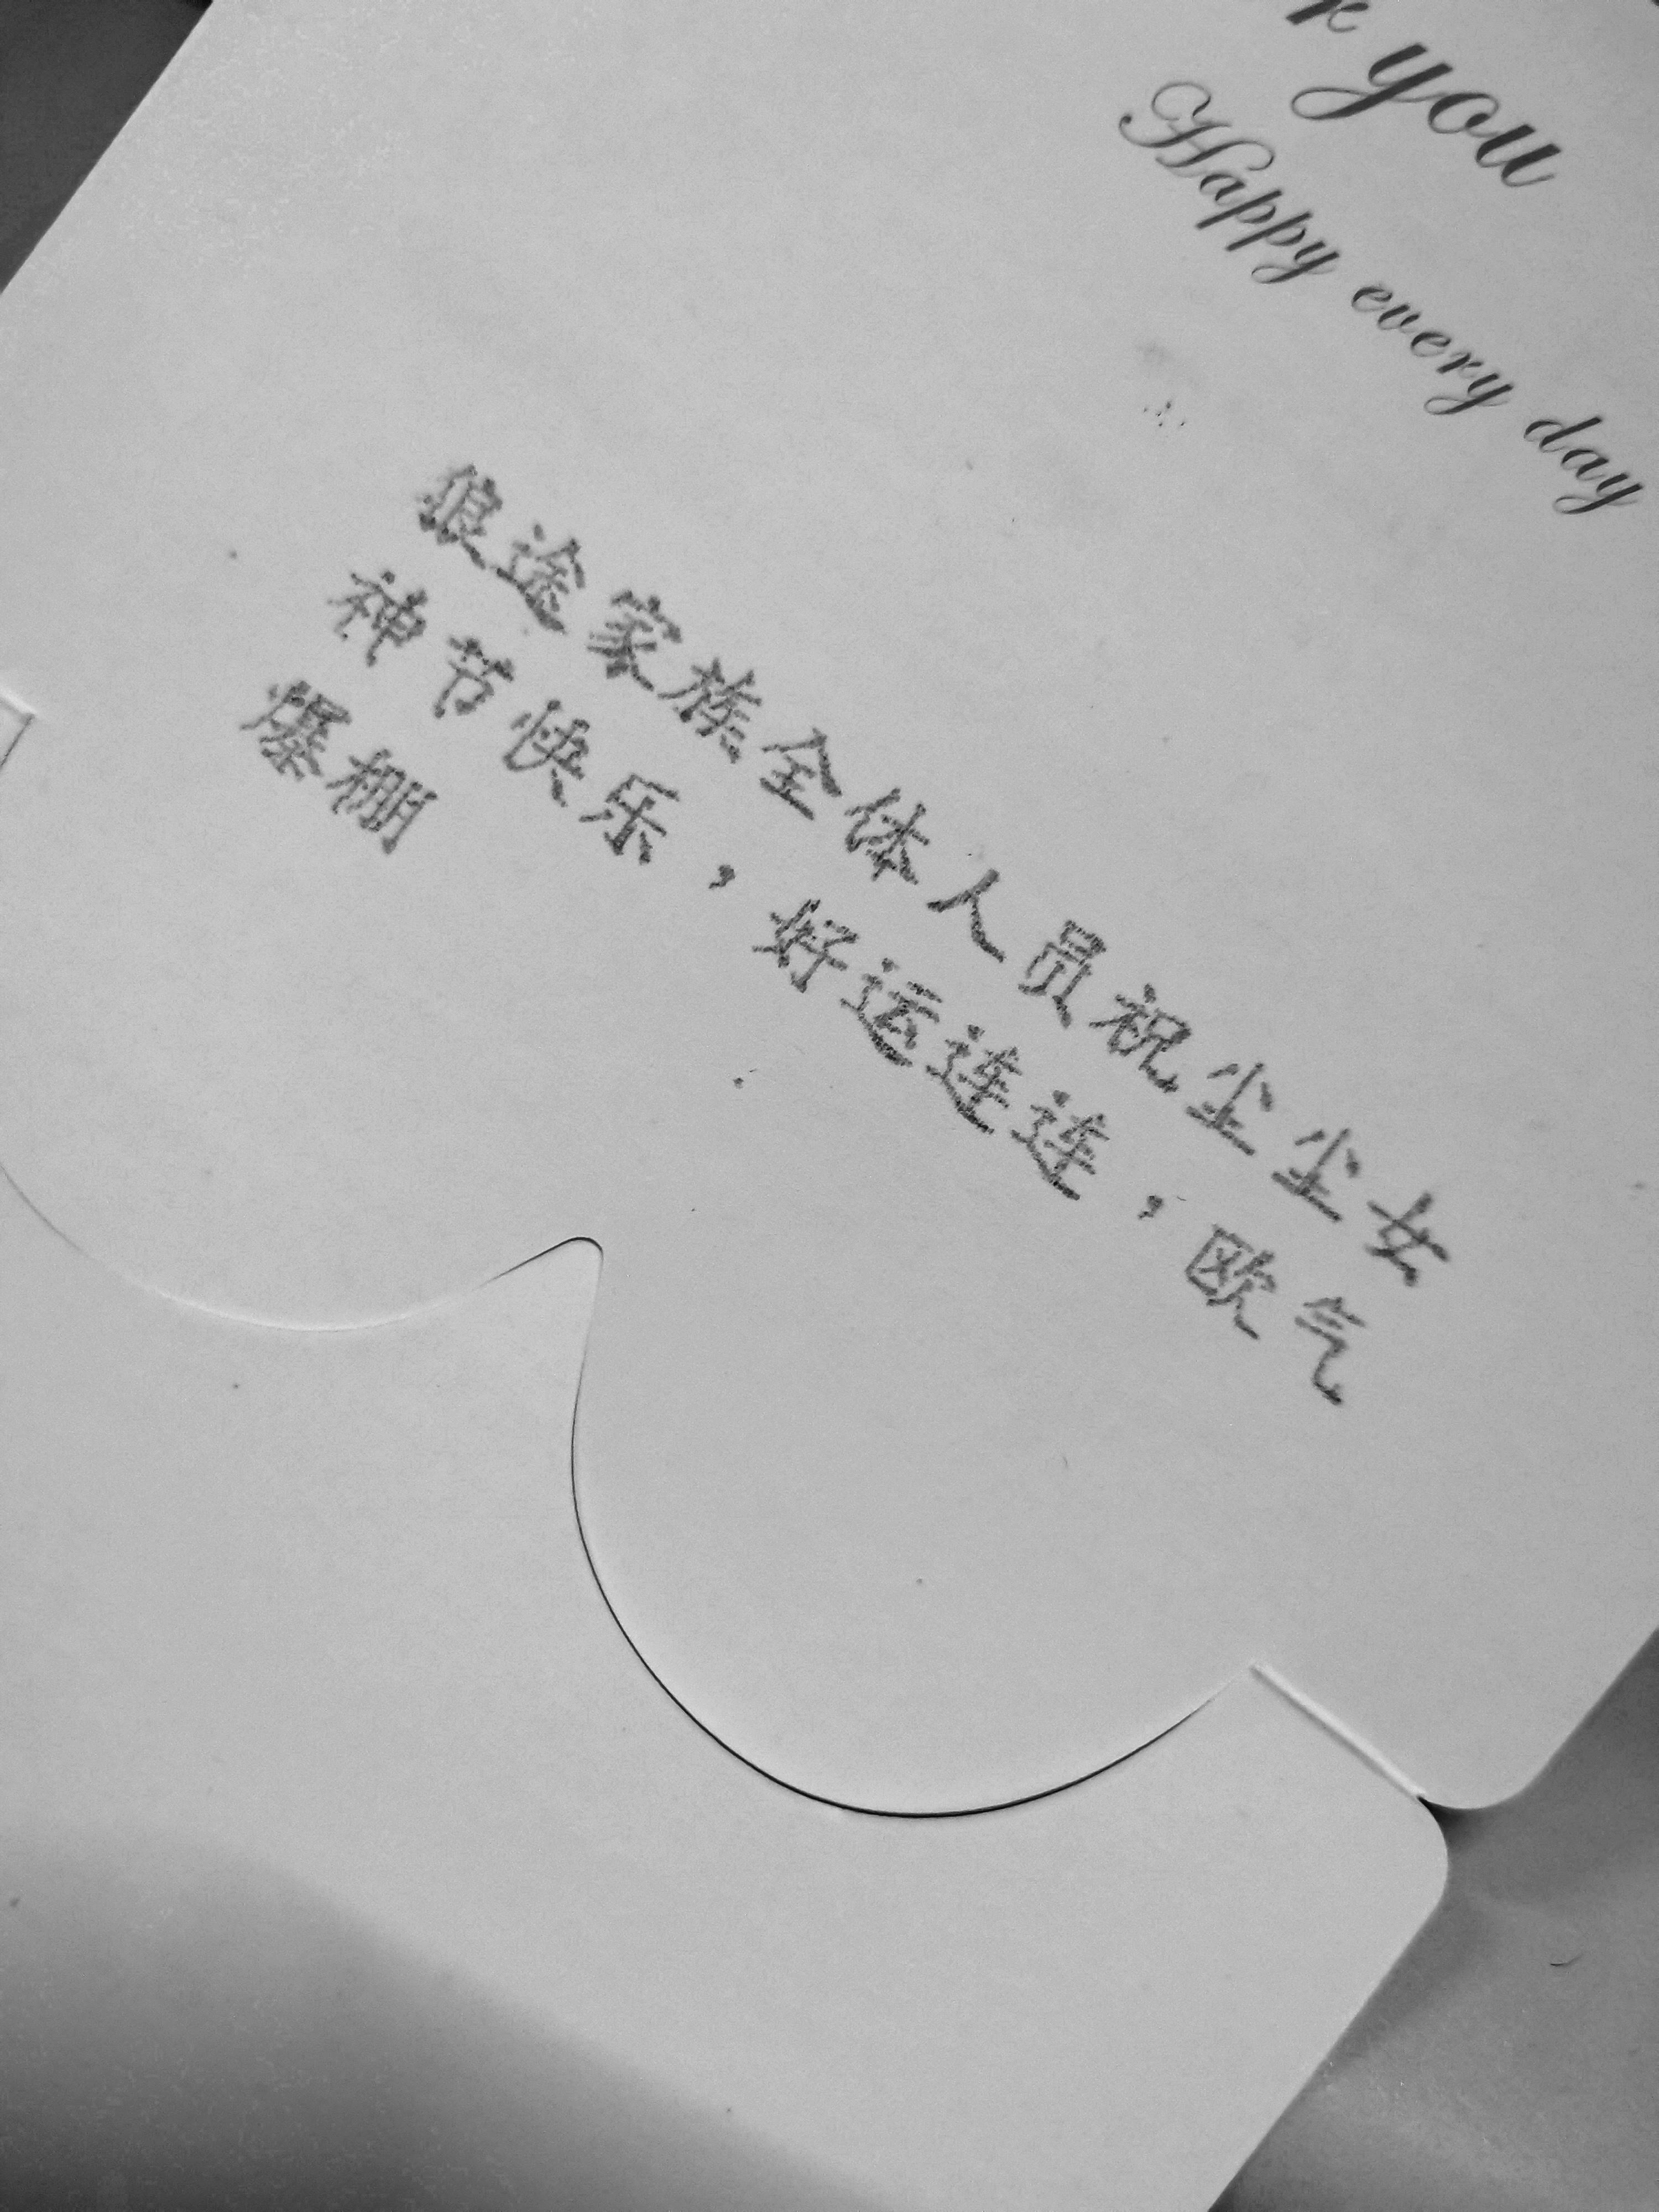 you
Happy every day
狼途家族全体人员祝尘尘女
神节快乐，好运连连，欧气
爆棚